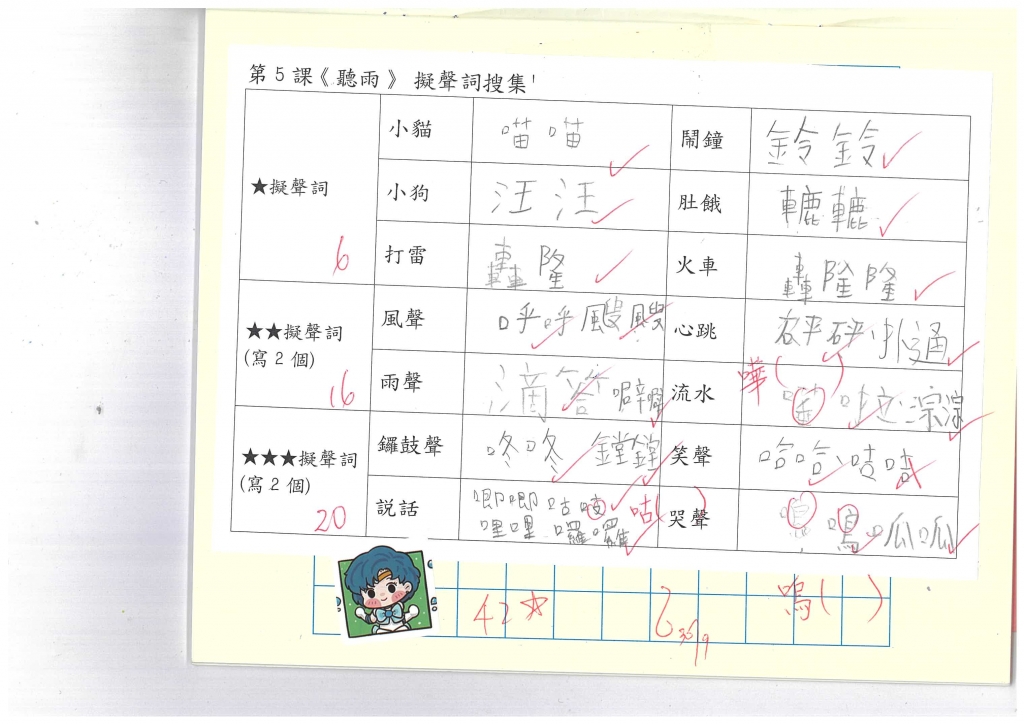 第5課《聽雨》 擬聲詞搜集
★擬聲詞
6
小貓 喵喵 鬧鐘 鈴鈴
小狗 汪汪 肚餓 轆轆
打雷 轟隆 火車 轟隆隆
★★擬聲詞
(寫2個)
16
風聲 呼呼 颼颼 心跳 砰砰 撲通
雨聲 滴答 流水 嘩( ) 啦 淙淙
★★★擬聲詞
(寫2個)
20
鑼鼓聲 咚咚 鏜鏜 笑聲 哈哈
說話 唧唧咕 咕( ) 哭聲 嗚 呱呱
哩哩囉囉
42 嗚( )